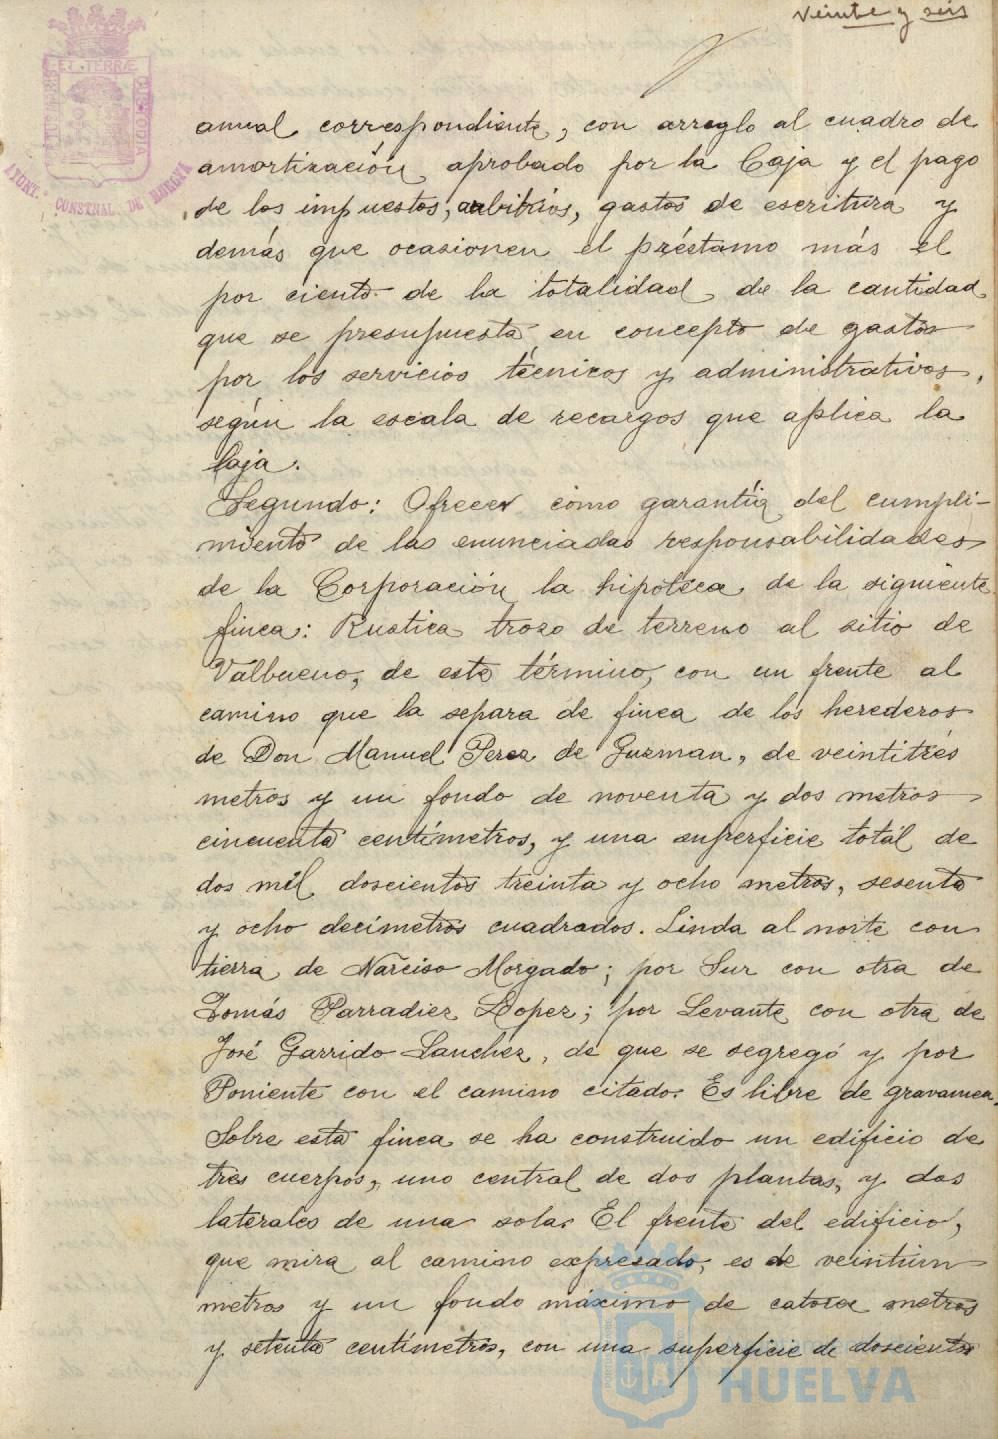 Veinte y seis
anual correspondiente, con arreglo al cuadro de
amortización aprobado por la Caja y el pago
de los impuestos, arbitrios, gastos de escritura y
demás que ocasionen el préstamo más el
por ciento de la totalidad de la cantidad
que se presupuesta en concepto de gastos
por los servicios técnicos y administrativos,
según la escala de recargos que aplica la
Caja.
Segundo: Ofrecer como garantía del cumpli-
miento de las enunciadas responsabilidades
de la Corporación la hipoteca de la siguiente
finca: Rustica trozo de terreno al sitio de
Valbueno, de este término, con un frente al
camino que la separa de finca de los herederos
de Don Manuel Perez de Guzman, de veintitrés
metros y un fondo de noventa y dos metros
cincuenta centímetros, y una superficie total de
dos mil doscientos treinta y ocho metros, sesenta
y ocho decímetros cuadrados. Linda al norte con
tierra de Narciso Morgado; por Sur con otra de
Tomás Parradiez Lopez; por Levante con otra de
José Garrido Sanchez, de que se segregó y por
Poniente con el camino citado. Es libre de gravamen.
Sobre esta finca se ha construido un edificio de
tres cuerpos, uno central de dos plantas, y dos
laterales de una sola. El frente del edificio,
que mira al camino expresado, es de veintiun
metros y un fondo máximo de catorce metros
y setenta centímetros, con una superficie de doscientos
AYUNT. CONSTNAL. DE HUELVA
HUELVA